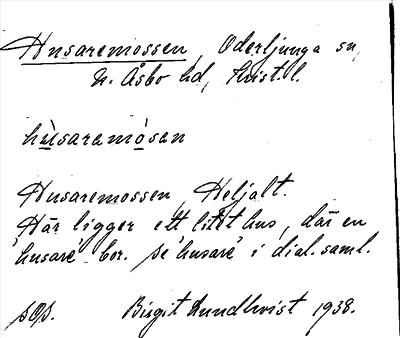 Husaremossen, Oderljunga sn,
N. Åsbo hd, Krist. l.
hùsaremòsen
Husaremossen, Heljalt.
Här ligger ett litet hus, där en
'husare' bor. Se 'husare' i dial. saml.
Birgit Lundkvist 1938.